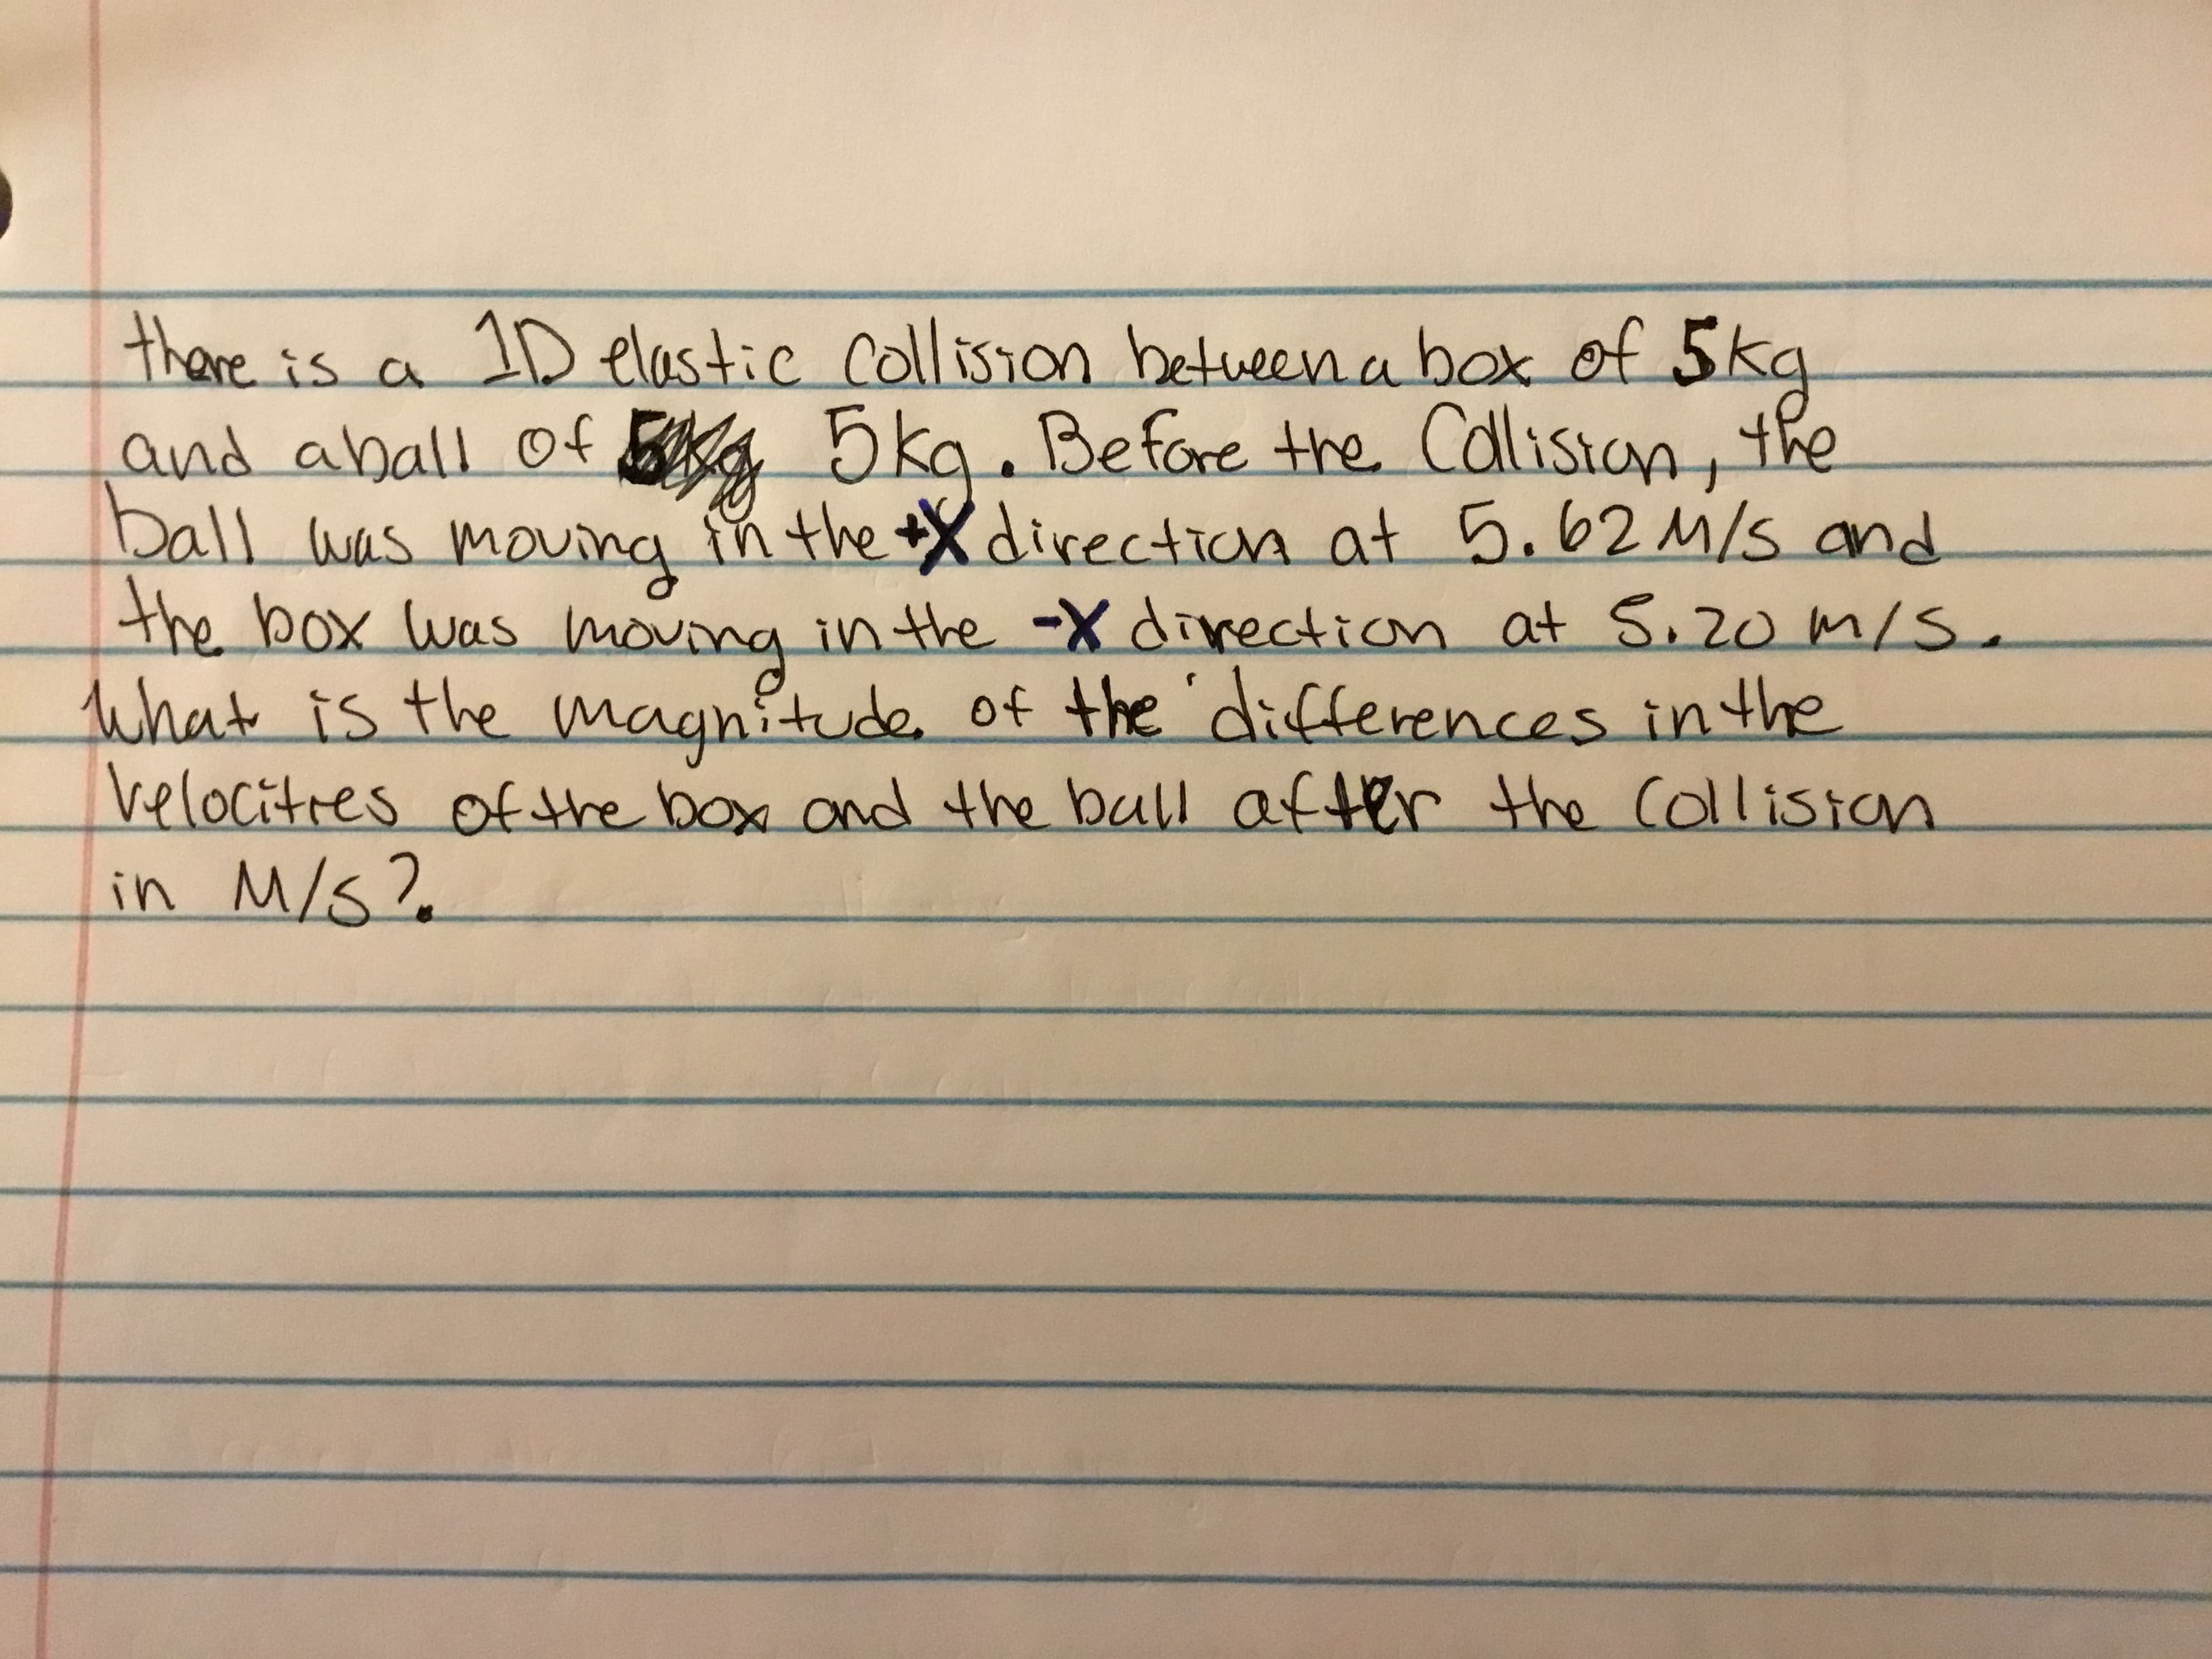 there is a 1D elastic collision between a box of 5kg
and a ball of 5kg. Before the Collision, the
ball was moving in the +X direction at 5.62 M/s and
the box was moving in the -X direction at 5.20 m/s.
What is the magnitude of the differences in the
velocities of the box and the ball after the Collision
in M/s?